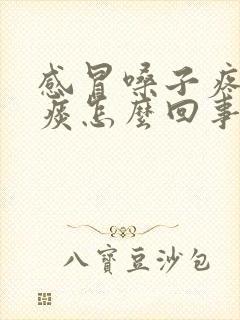 感冒嗓子疼
痰怎麼回事
八寶豆沙包